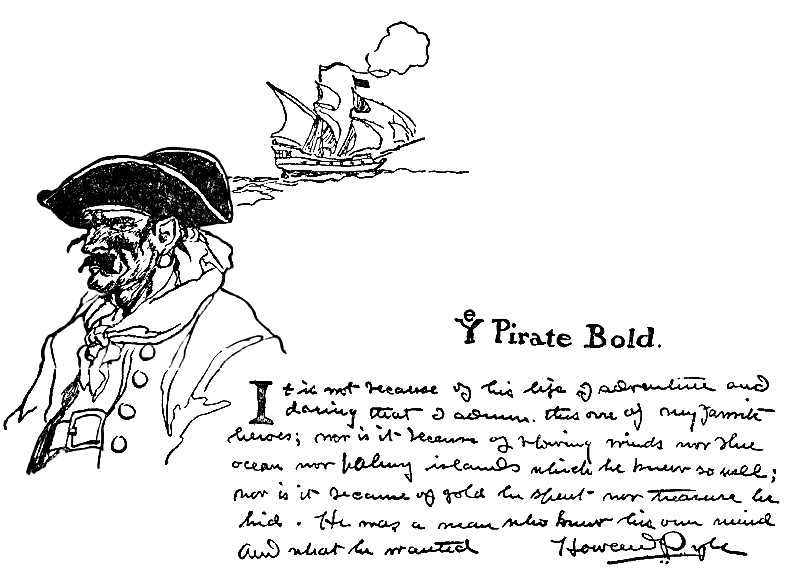 Ye Pirate Bold.
It is not because of his life of adventure and
daring that I admire this one of my favorite
heroes; nor is it because of blowing winds nor blue
ocean nor balmy islands which he knew so well;
nor is it because of gold he spent nor treasure he
hid. He was a man who knew his own mind
and what he wanted
Howard Pyle